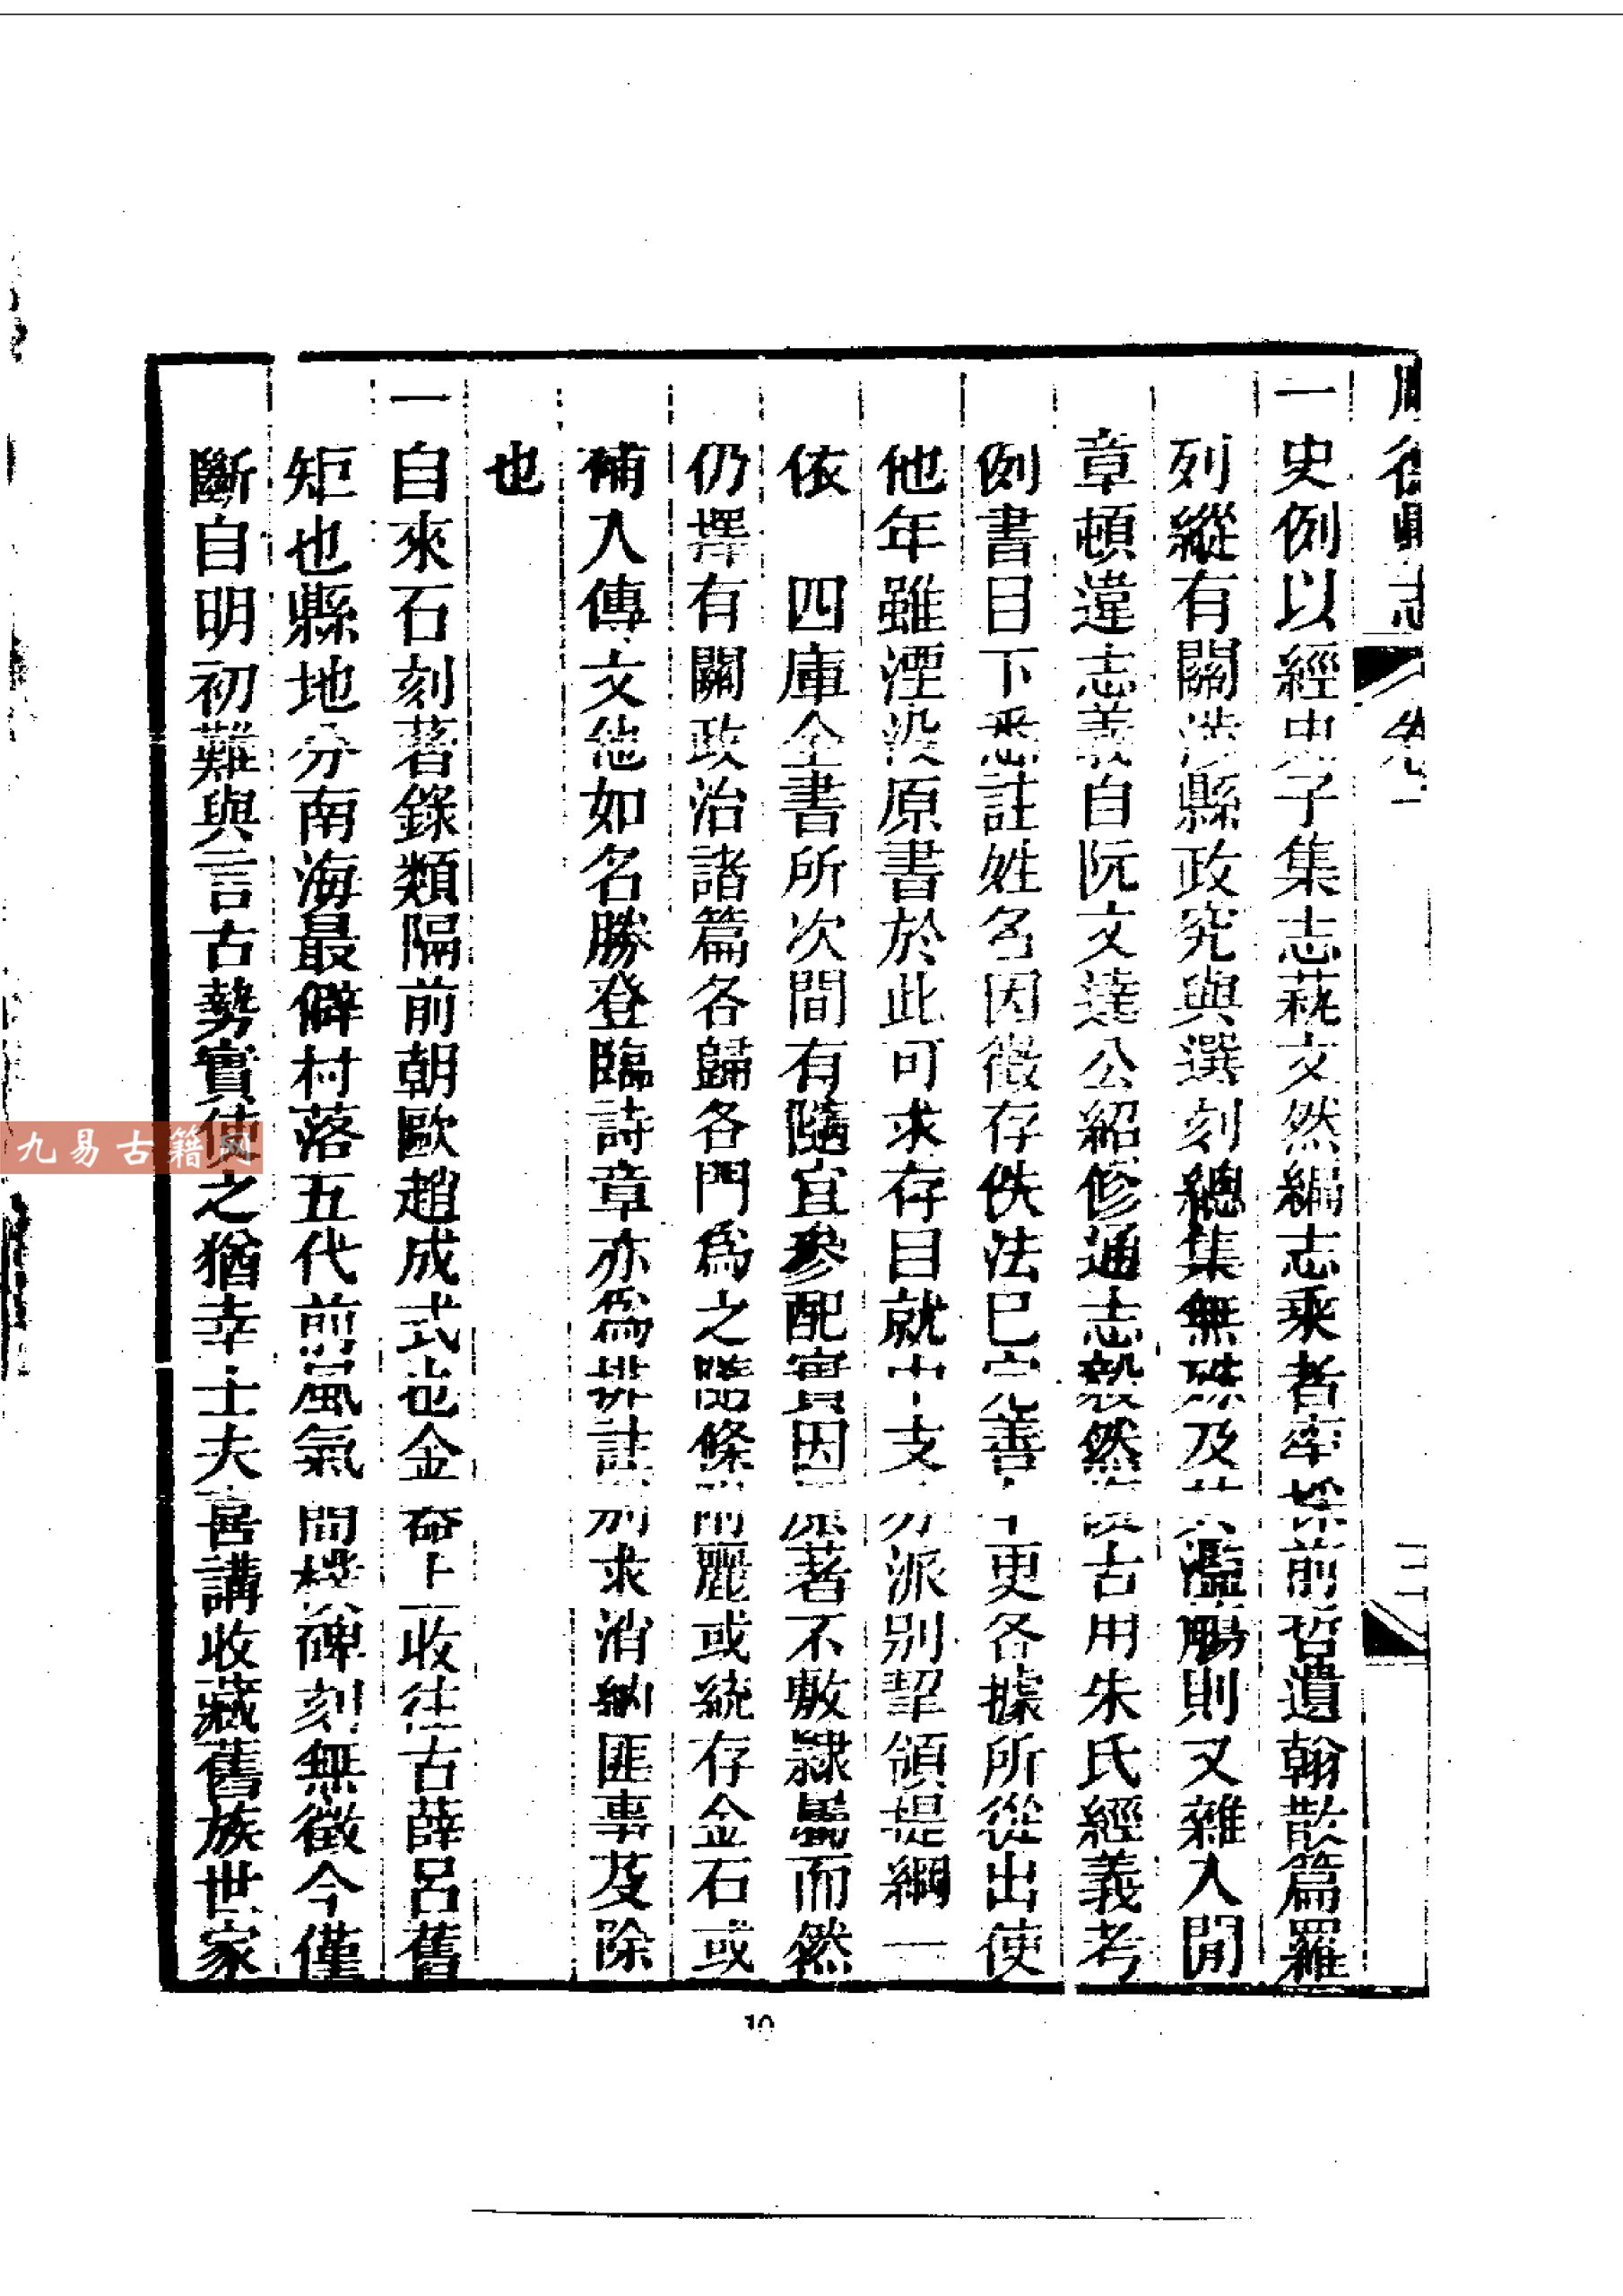 順德縣志 卷一 三
一史例以經史子集志蓺文然編志乘者率採前哲遺翰散篇羅
列縱有關涉縣政究與選刻總集無殊及其濫觴則又雜入閒
章頓違志義自阮文達公紹修通志毅然復古用朱氏經義考
例書目下悉註姓名因徵存佚法已完善更各據所從出使
他年雖湮没原書於此可求存目就中支分派别挈領提綱一
依 四庫全書所次間有隨宜參配實因原著不敷隸屬而然
仍擇有關政治諸篇各歸各門為之踏條附麗或統存金石或
補入傳文他如名勝登臨詩章亦為掛註別求消納匪專及除
也
一自來石刻著錄類隔前朝歐趙成式也金奁上收往古薛呂舊
矩也縣地分南海最僻村落五代前風氣閒樸碑刻無徵今僅
斷自明初難與言古勢實使之猶幸士夫喜講收藏舊族世家
10
九易古籍网